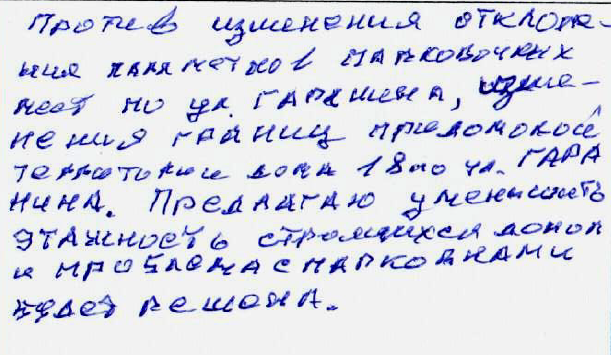 Против изменения отклоне-
ния параметров парковочных
мест по ул. Гаранина, изме-
нения границ придомовой
территории дома 18 по ул. ГАРА
НИНА. Предлагаю уменьшить
этажность строящихся домов
и проблема с парковками
будет решена.